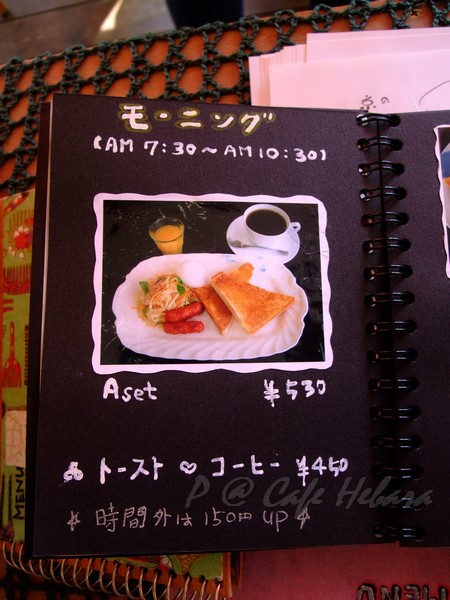 モーニング
(AM 7:30～AM 10:30)
Aset ¥530
トースト ♡ コーヒー ¥450
時間外は150円up
P @ Cafe Hebara
京の
MENU
MENU